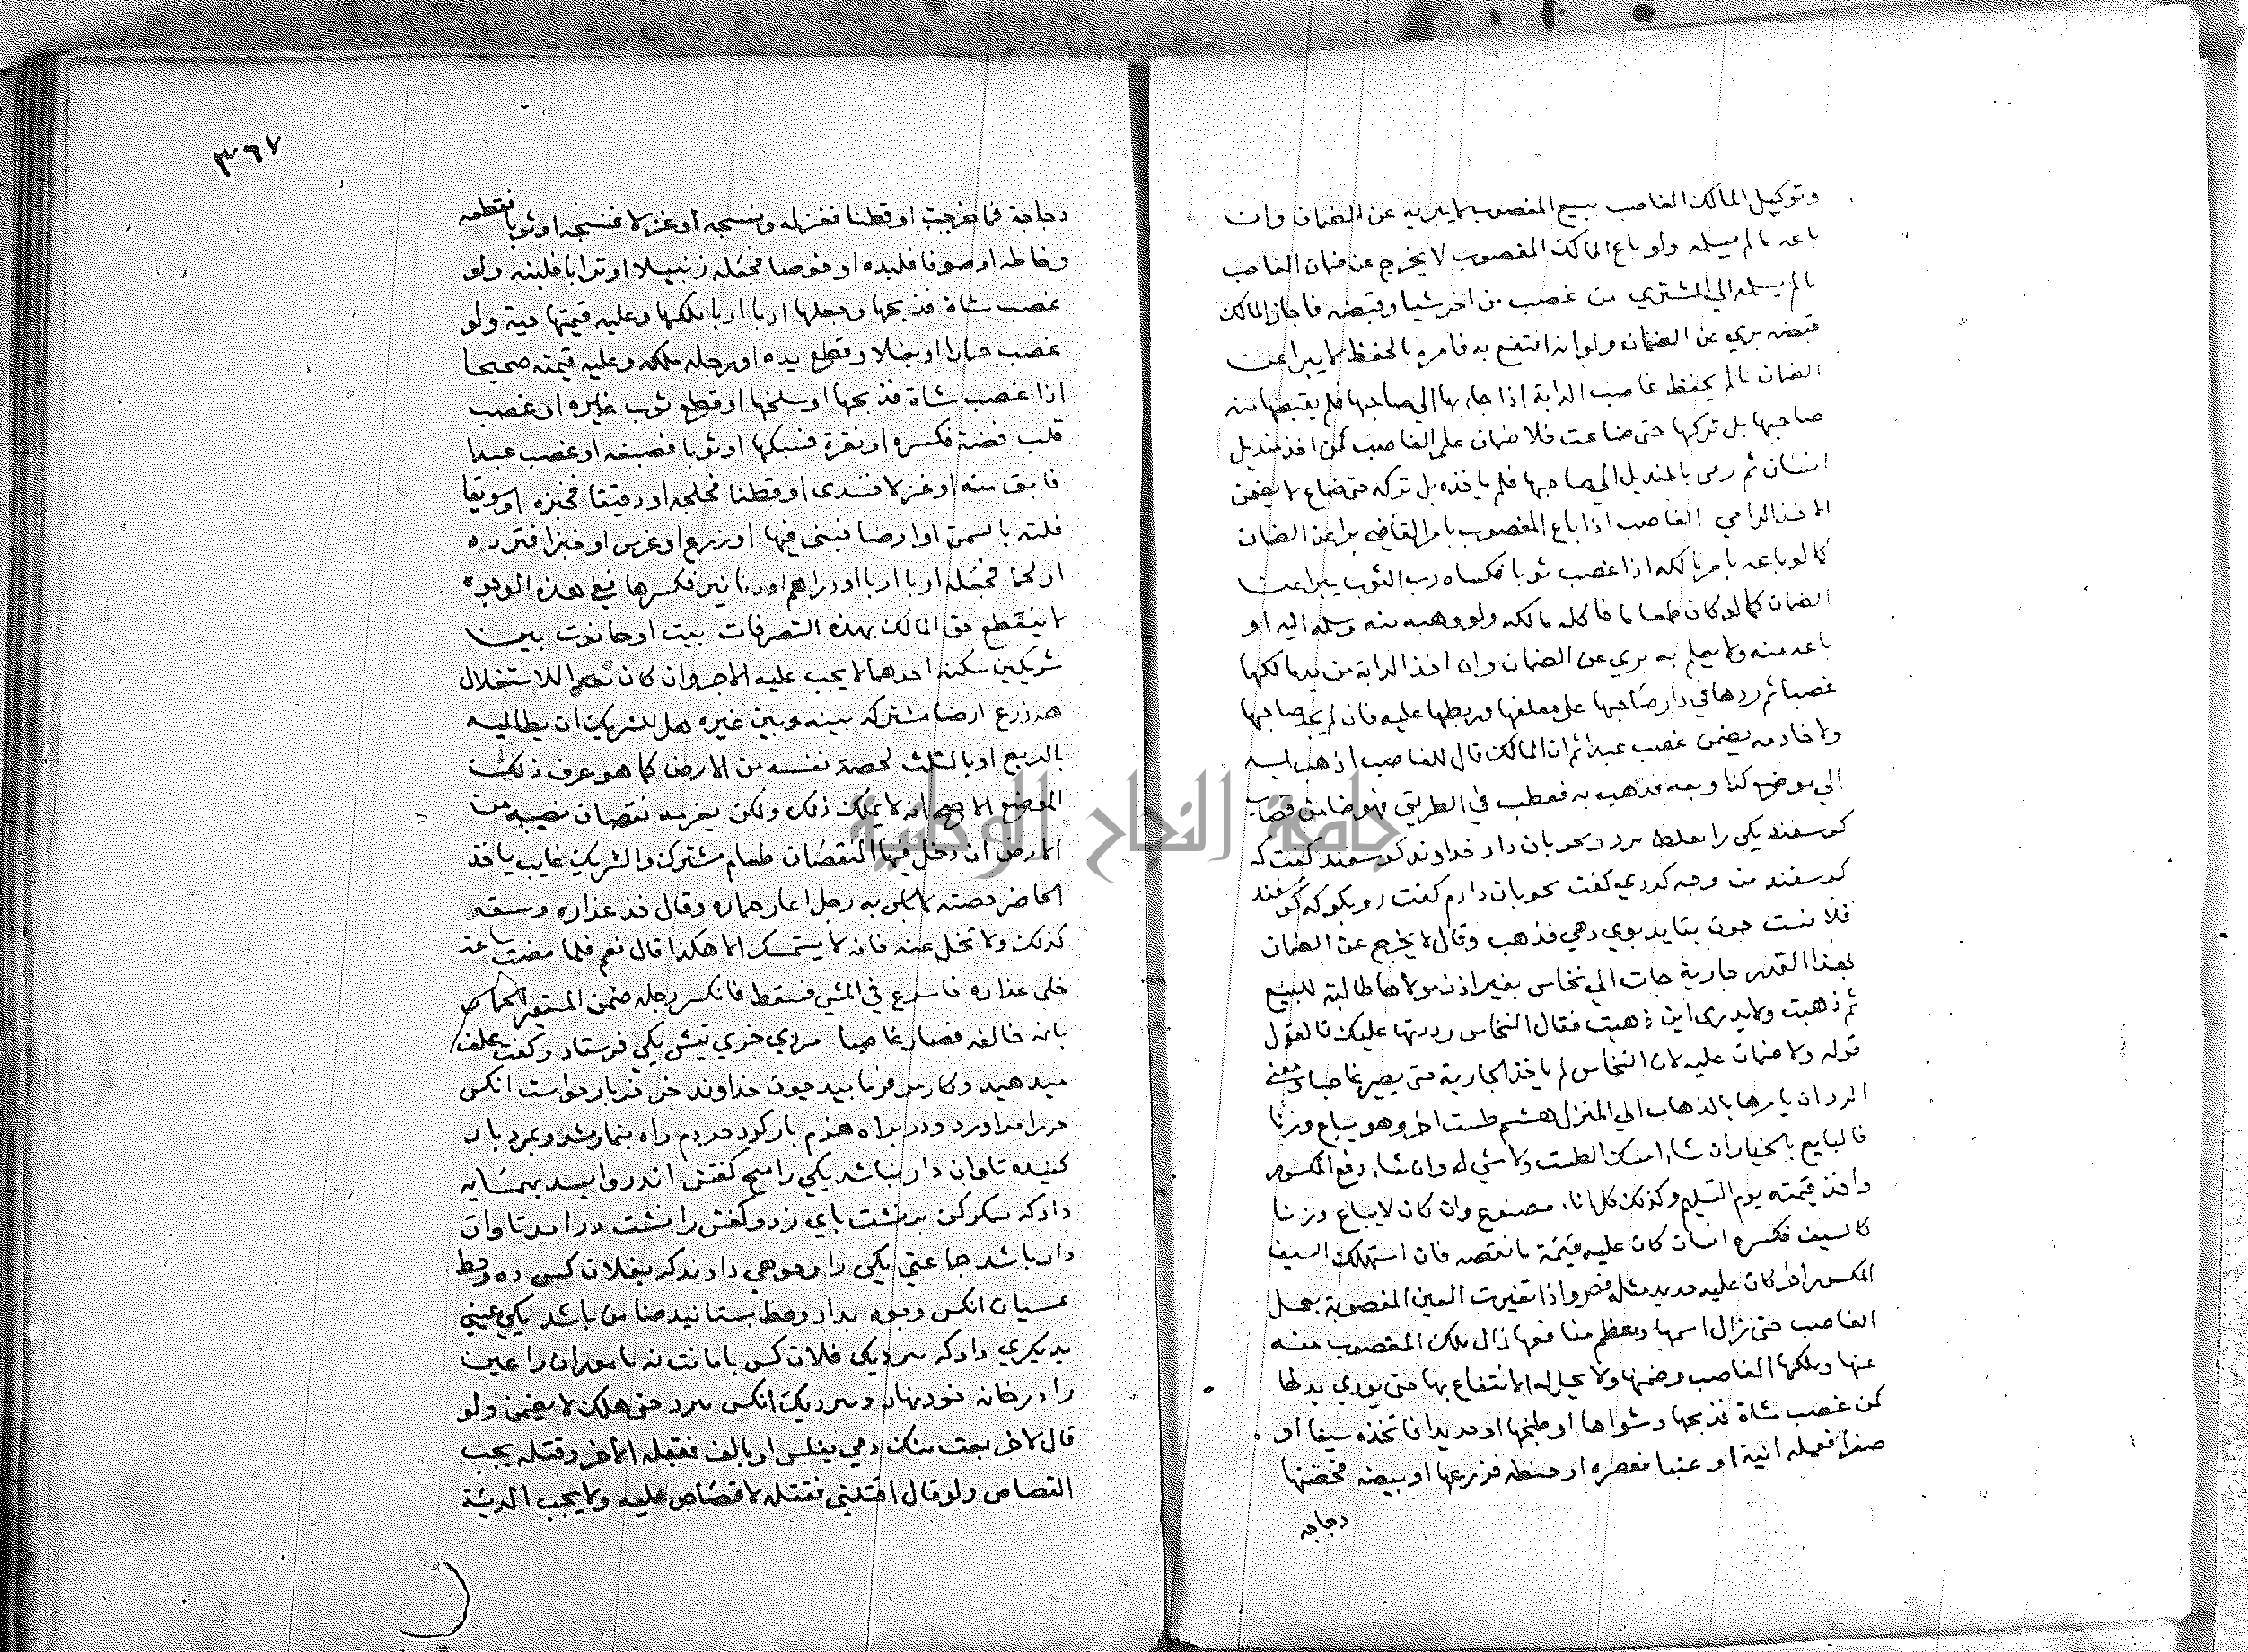 وتوكيل المالك الغاصب ببيع المغصوب لا يبريه عن الضمان وان
باعه ما لم يسلمه ولو باع المالك المغصوب لا يخرج عن ضمان الغاصب
ما لم يسلمه الي المشتري من غصب من اخر شيا وقبضه فاجاز المالك
قبضه بري عن الضمان ولو انه انتفع به فامره بالحفظ لا يبرا عن
الضمان ما لم يحفظ غاصب الدابة اذا جاء بها الي صاحبها فلم يقبضها منه
صاحبها بل تركها حتى ضاعت فلا ضمان على الغاصب كمن اخذ منديل
انسان ثم رمى بالمنديل الي صاحبها فلم ياخذه بل تركه حتى ضاع لا يضمن
الاخذ الرامي الغاصب اذا باع المغصوب بامر القاضي برا عن الضمان
كما لو باعه بامر مالكه اذا غصب ثوبا فكساه رب الثوب يبرا عن
الضمان كما لو كان طعاما فاكله مالكه ولو وهبه منه وسلمه اليه او
باعه منه ولا يعلم به بري عن الضمان وان اخذ الدابة من يد مالكها
غصبا ثم ردها في دار صاحبها على معلفها وربطها عليه فان لم يجد صاحبها
ولا خادمه يضمن غصب عبدا ثم ان المالك قال للغاصب اذهب به
الي موضع كذا وبعه فذهب به فعطب في الطريق فهو ضامن قصاب
كوسفند يكي را بغلط برد وبجوبان داد خداوند كوسفند كفت كه
كوسفند من وجه كردي كفت بجوبان دادم كفت رو بكو كه كوسفند
فلانست جون بيايد بوي دهي فذهب وقال لا يخرج عن الضمان
بهذا القدر جارية جات الي نخاس بغير اذن مولاها طالبة للبيع
ثم ذهبت ولا يدرى اين ذهبت فقال النخاس رددتها عليك فالقول
قوله ولا ضمان عليه لان النخاس لم ياخذ الجارية حتى يصير غاصبا ومعنى
الرد ان يامرها بالذهاب الي المنزل هشم طست اخر وهو يباع وزنا
فالبايع بالخيار ان شاء امسك الطست ولا شي له وان شاء دفع المكسور
واخذ قيمته يوم التسليم وكذلك كل اناء مصنوع وان كان لا يباع وزنا
كالسيف فكسره انسان كان عليه قيمة ما نقصه فان استهلك السيف
المكسور اخر كان عليه حديد مثله واذا تغيرت العين المغصوبة بعمل
الغاصب حتى زال اسمها ومعظم منافعها زال ملك المغصوب منه
عنها وملكها الغاصب وضمنها ولا يحل له الانتفاع بها حتى يودي بدلها
كمن غصب شاة فذبحها وشواها او طبخها او حديدا فاتخذه سيفا او
صفرا فعمله انية او عنبا فعصره او حنطه فزرعها او بيضه فحضنها
دجاجه
٣٦٧
دجاجة فاخرجت او قطنا فغزله ونسجه او غزلا فنسجه او ثوبا فقطعه
وخاطه او صوفا فلبده او خوصا فجعله زنبيلا او ترابا فلبنه ولو
غصب شاة فذبحها وجعلها اربا اربا ملكها وعليه قيمتها حية ولو
غصب حمارا او بغلا وقطع يده او رجله ملكه وعليه قيمته صحيحا
اذا غصب شاة فذبحها او سلخها او قطع ثوب غيره او غصب
قلب فضة فكسره او نقرة فسبكها او ثوبا فصبغه او غصب عبدا
فابق منه او غزلا فسدى او قطنا فحلجه او دقيقا فخبزه او سويقا
فلته بالسمن او ارضا فبنى فيها او زرع او غرس او خبزا فثرده
او لحما فجعله اربا اربا او دراهم او دنانير فكسرها ففي هذه الوجوه
لا ينقطع حق المالك بهذه التصرفات بيت او حانوت بين
شريكين سكنه احدهما لا يجب عليه الاجر وان كان معدا للاستغلال
زرع ارضا مشتركه بينه وبين غيره هل للشريك ان يطالبه
بالربع او بالثلث لحصة نفسه من الارض كما هو عرف ذلك
الموضع الاصح انه لا يملك ذلك ولكن يغرمه نقصان نصيبه من
الارض ان دخل فيها النقصان طعام مشترك والشريك غايب ياخذ
الحاضر حصته لا باس به رجل اعار حماره وقال خذ عذاره وسقه
كذلك ولا تخل عنه فانه لا يستمسك الا هكذا قال نعم فلما مضت ساعة
خلى عذاره فاسرع في المشي فسقط فانكسر رجله ضمن المستعير الحمار
بانه خالفه فصار غاصبا مردي خري نيش يكي فرستاد وكفت علف
ميدهيد وكار مفرماييد جون خداوند خر خر باز خواست انكس
خر را مي اورد ودر راه هيزم بار كرد خر در راه بيمار شد وبمرد بان
كننده تاوان دار نباشد يكي را ميخ كفش اندر وا بسد بهمسايه
داد كه نيكو كن بدست باي زد وكفش را بشت درامد تاوان
دار باشد جماعتي يكي را وجوهي دادند كه بفلان كس ده وخط
بستان انكس وجوه بداد وخط بستانيد ضامن باشد يكي عيني
بديكري داد كه نزديك فلان كس بامانت نه مامور ان عين
را در خانه خود نهاد ونزديك انكس نبرد حتى هلك لا يضمن ولو
قال لاخر بعت منك دمي بفلس او بالف فقبله الاخر وقتله يجب
القصاص ولو قال اقتلني فقتله لا قصاص عليه ولا يجب الدية
جامعة النجاح الوطنية